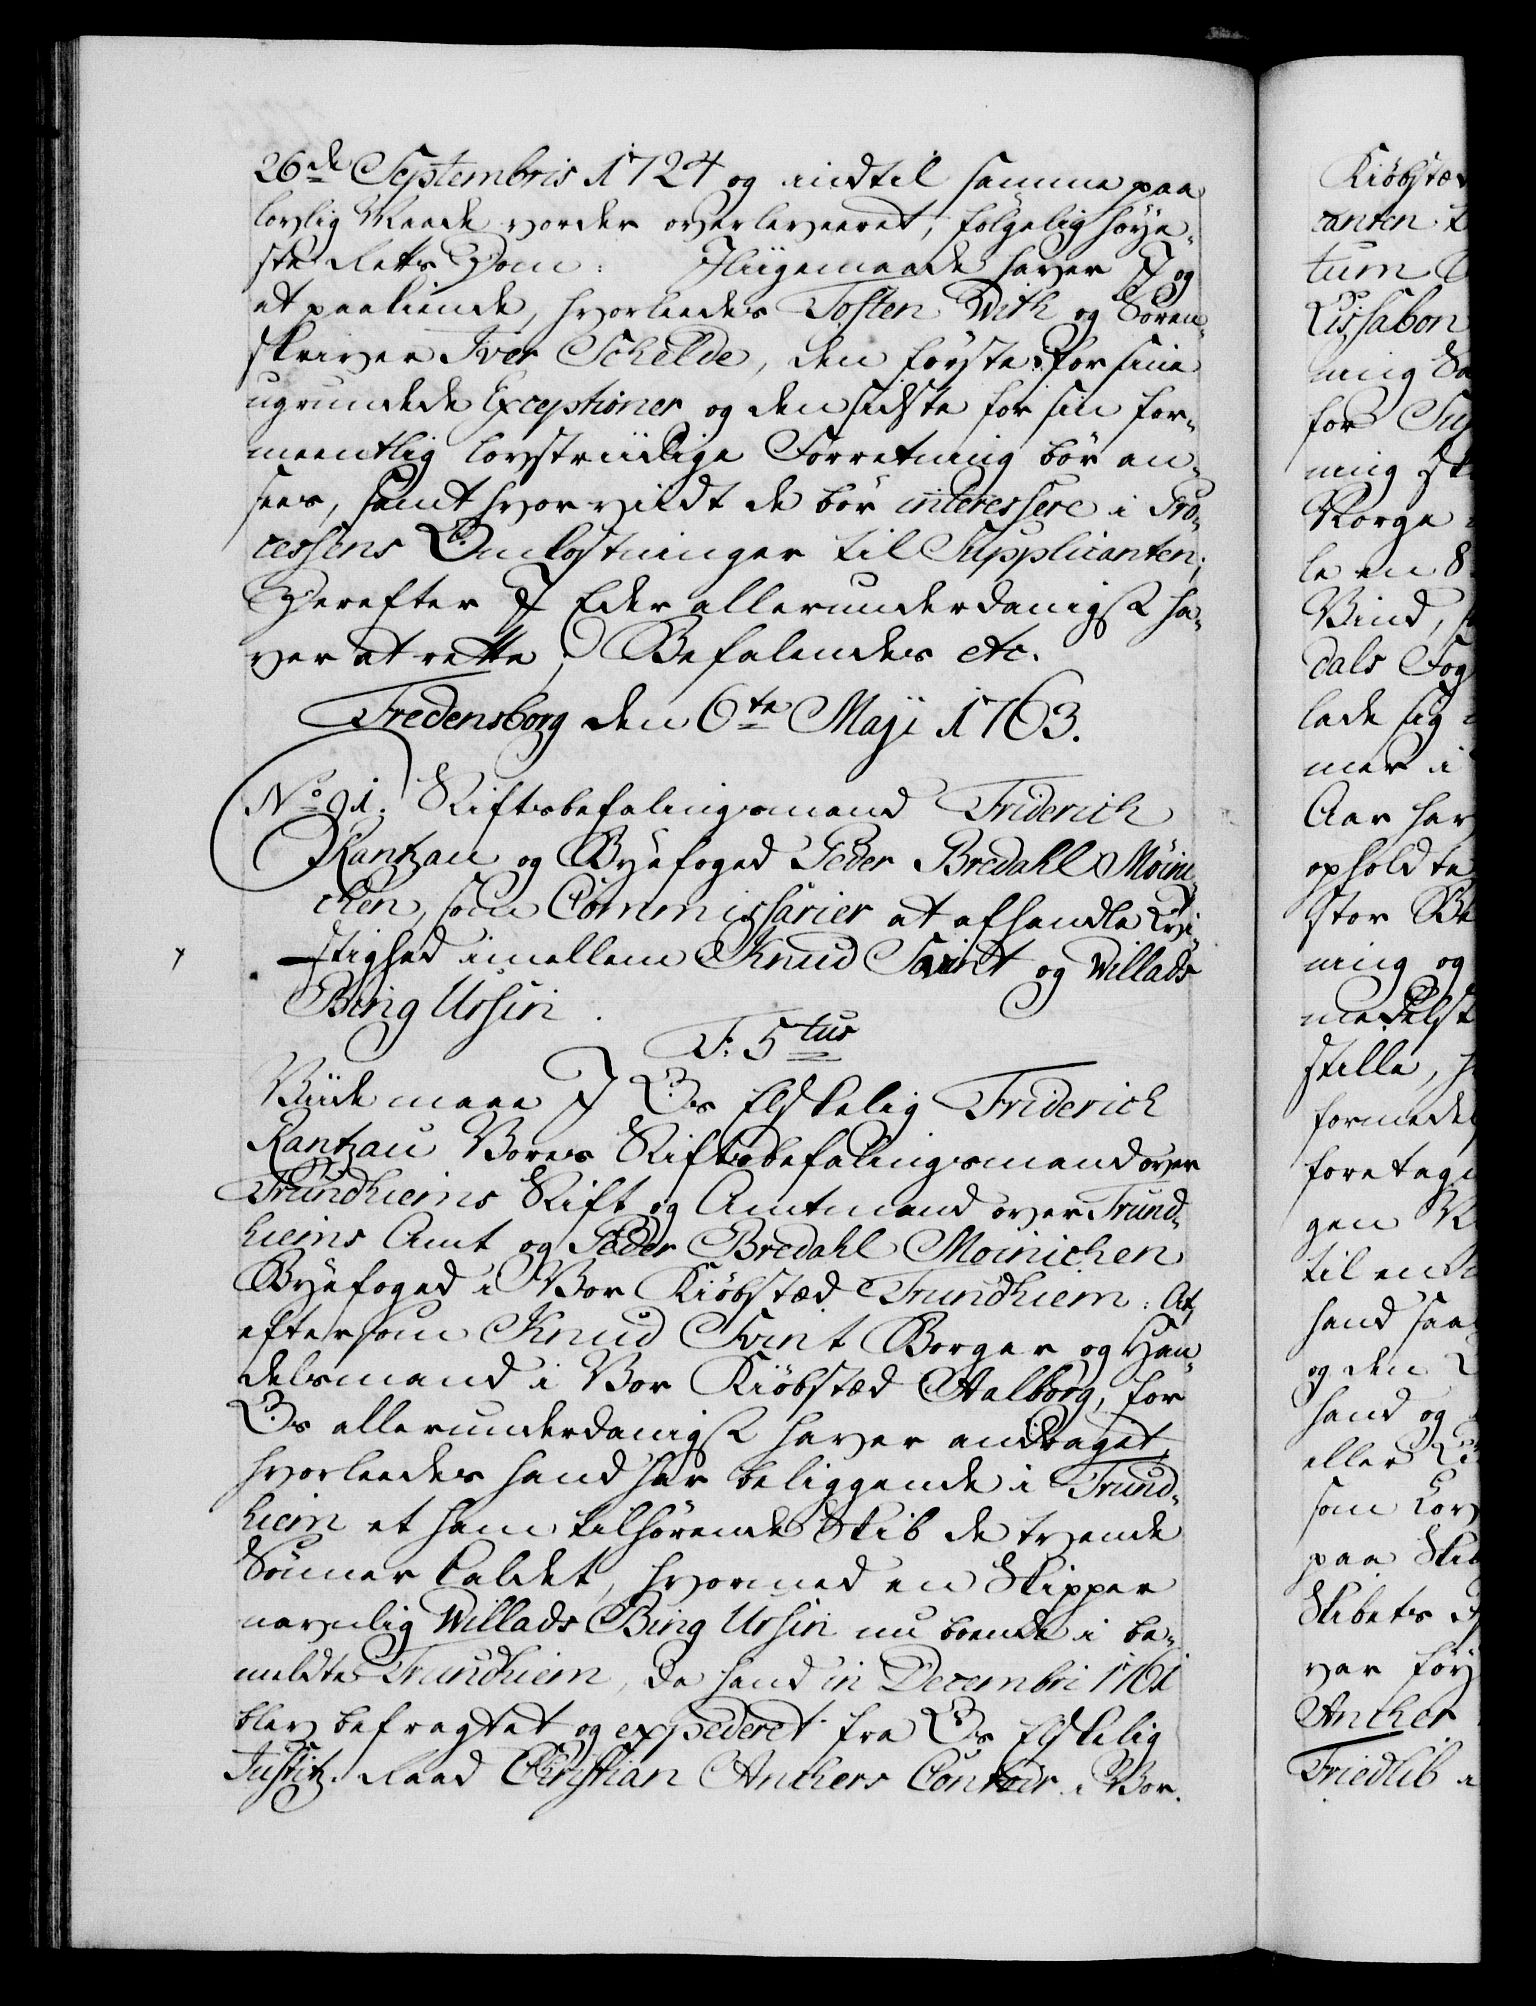 26de Septembris 1724 og indtil samme paa
lovlig Maade vorder overleveeret, følgelig høye-
ste Retts Dom: Iligemaade haver I og
at paakiende, hvorleedes Tosten With og Soren-
skriver Iver Schelde, den første for sine
ugrundede Exceptioner og den sidste for sin for-
meentlig lovstriidige Forretning bør an-
sees, samt hvorviidt de bør interessere i Pro-
cessens Omkostninger til Supplicanten;
Derefter I Eder allerunderdanigst ha-
ver at rette; Befalendes etc.
Fredensborg den 6te Maji 1763.
No 91. Stiftsbefalingsmand Friderich
Rantzau og Byefoged Peder Bredahl Møini-
chen, som Commissarier at afhandle Tvi-
stighed imellem Knud Svint og Willads
Bing Ursin.
F: 5tus
Viide maae I Os Elskelig Friderich
Rantzau Vores Stiftsbefalingsmand over
Trundhiems Stift og Amtmand over Trund-
hiems Amt og Peder Bredahl Moinichen
Byefoged i Vor Kiøbstæd Trundhiem: At,
eftersom Knud Svint Borger og Han-
delsmand i Vor Kiøbstæd Aalborg, for
Os allerunderdanigst haver andraget,
hvorleedes hand har beliggende i Trund-
hiem et ham tilhørende Skib de tvende
Sønner kaldet, hvormed en Skipper
navnlig Willads Bing Ursin nu boende i be-
meldte Trundhiem, da hand in Decembri 1761
blev befragtet og expederet fra Os Elskelig
Justitz-Raad Christian Anchers Contoir i Vor
Kiøbstæd
canten
tum
Lissabon
ning
for
ning
Norge
le en 8
Vind,
dals Fog
lade sig
mer i
Aar har
opholdte
stor
ning og
medelst
stille,
formedel
foretag
gen
til en
hand saa
og den
hand og
eller
som
paa Skib
Skibets
var
Ancher
Friedlib